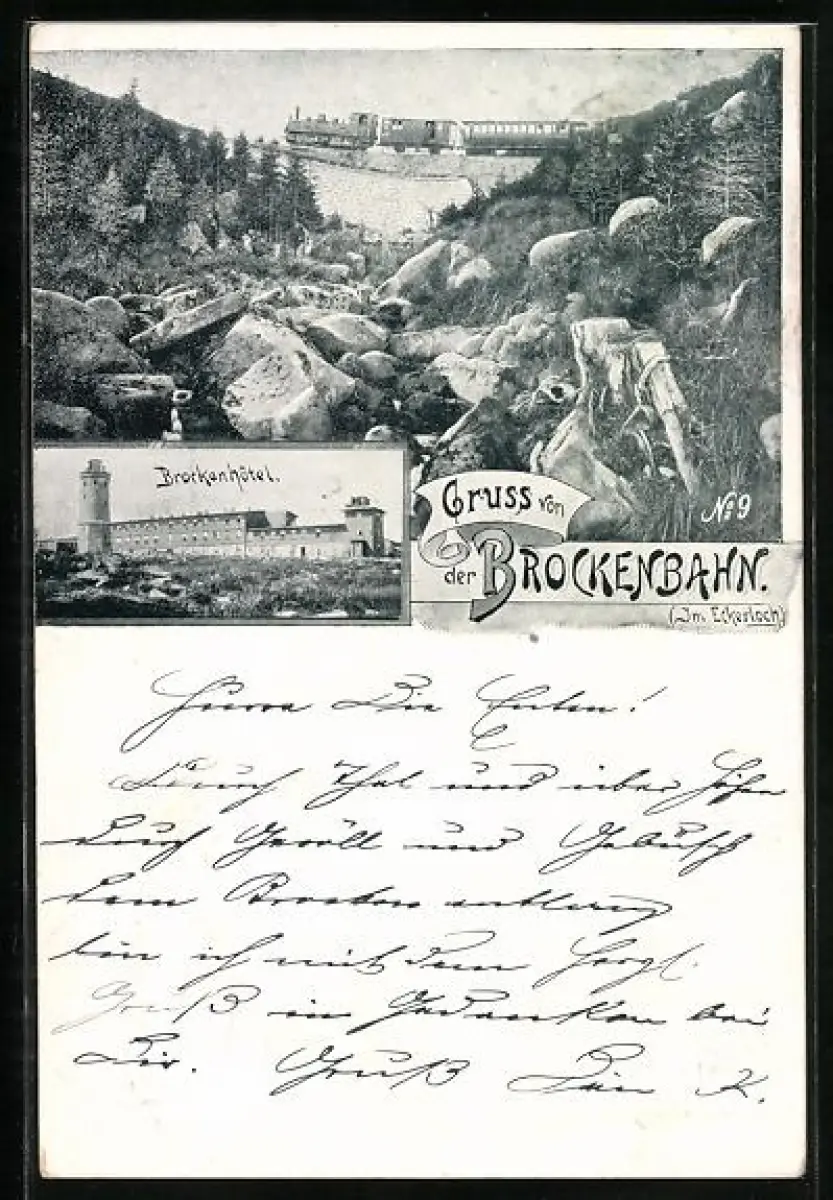 Brockenhôtel.
Gruss von
der BROCKENBAHN.
No 9
(Im Eckerloch)
Hurra Die Enten!
Durch Thal und über Höhen
durch Geröll und Gebüsch
dem Brocken entlang
bin ich mit dem Hergl.
Gruß in Gedanken bei
Dir. Gruß Dein K.